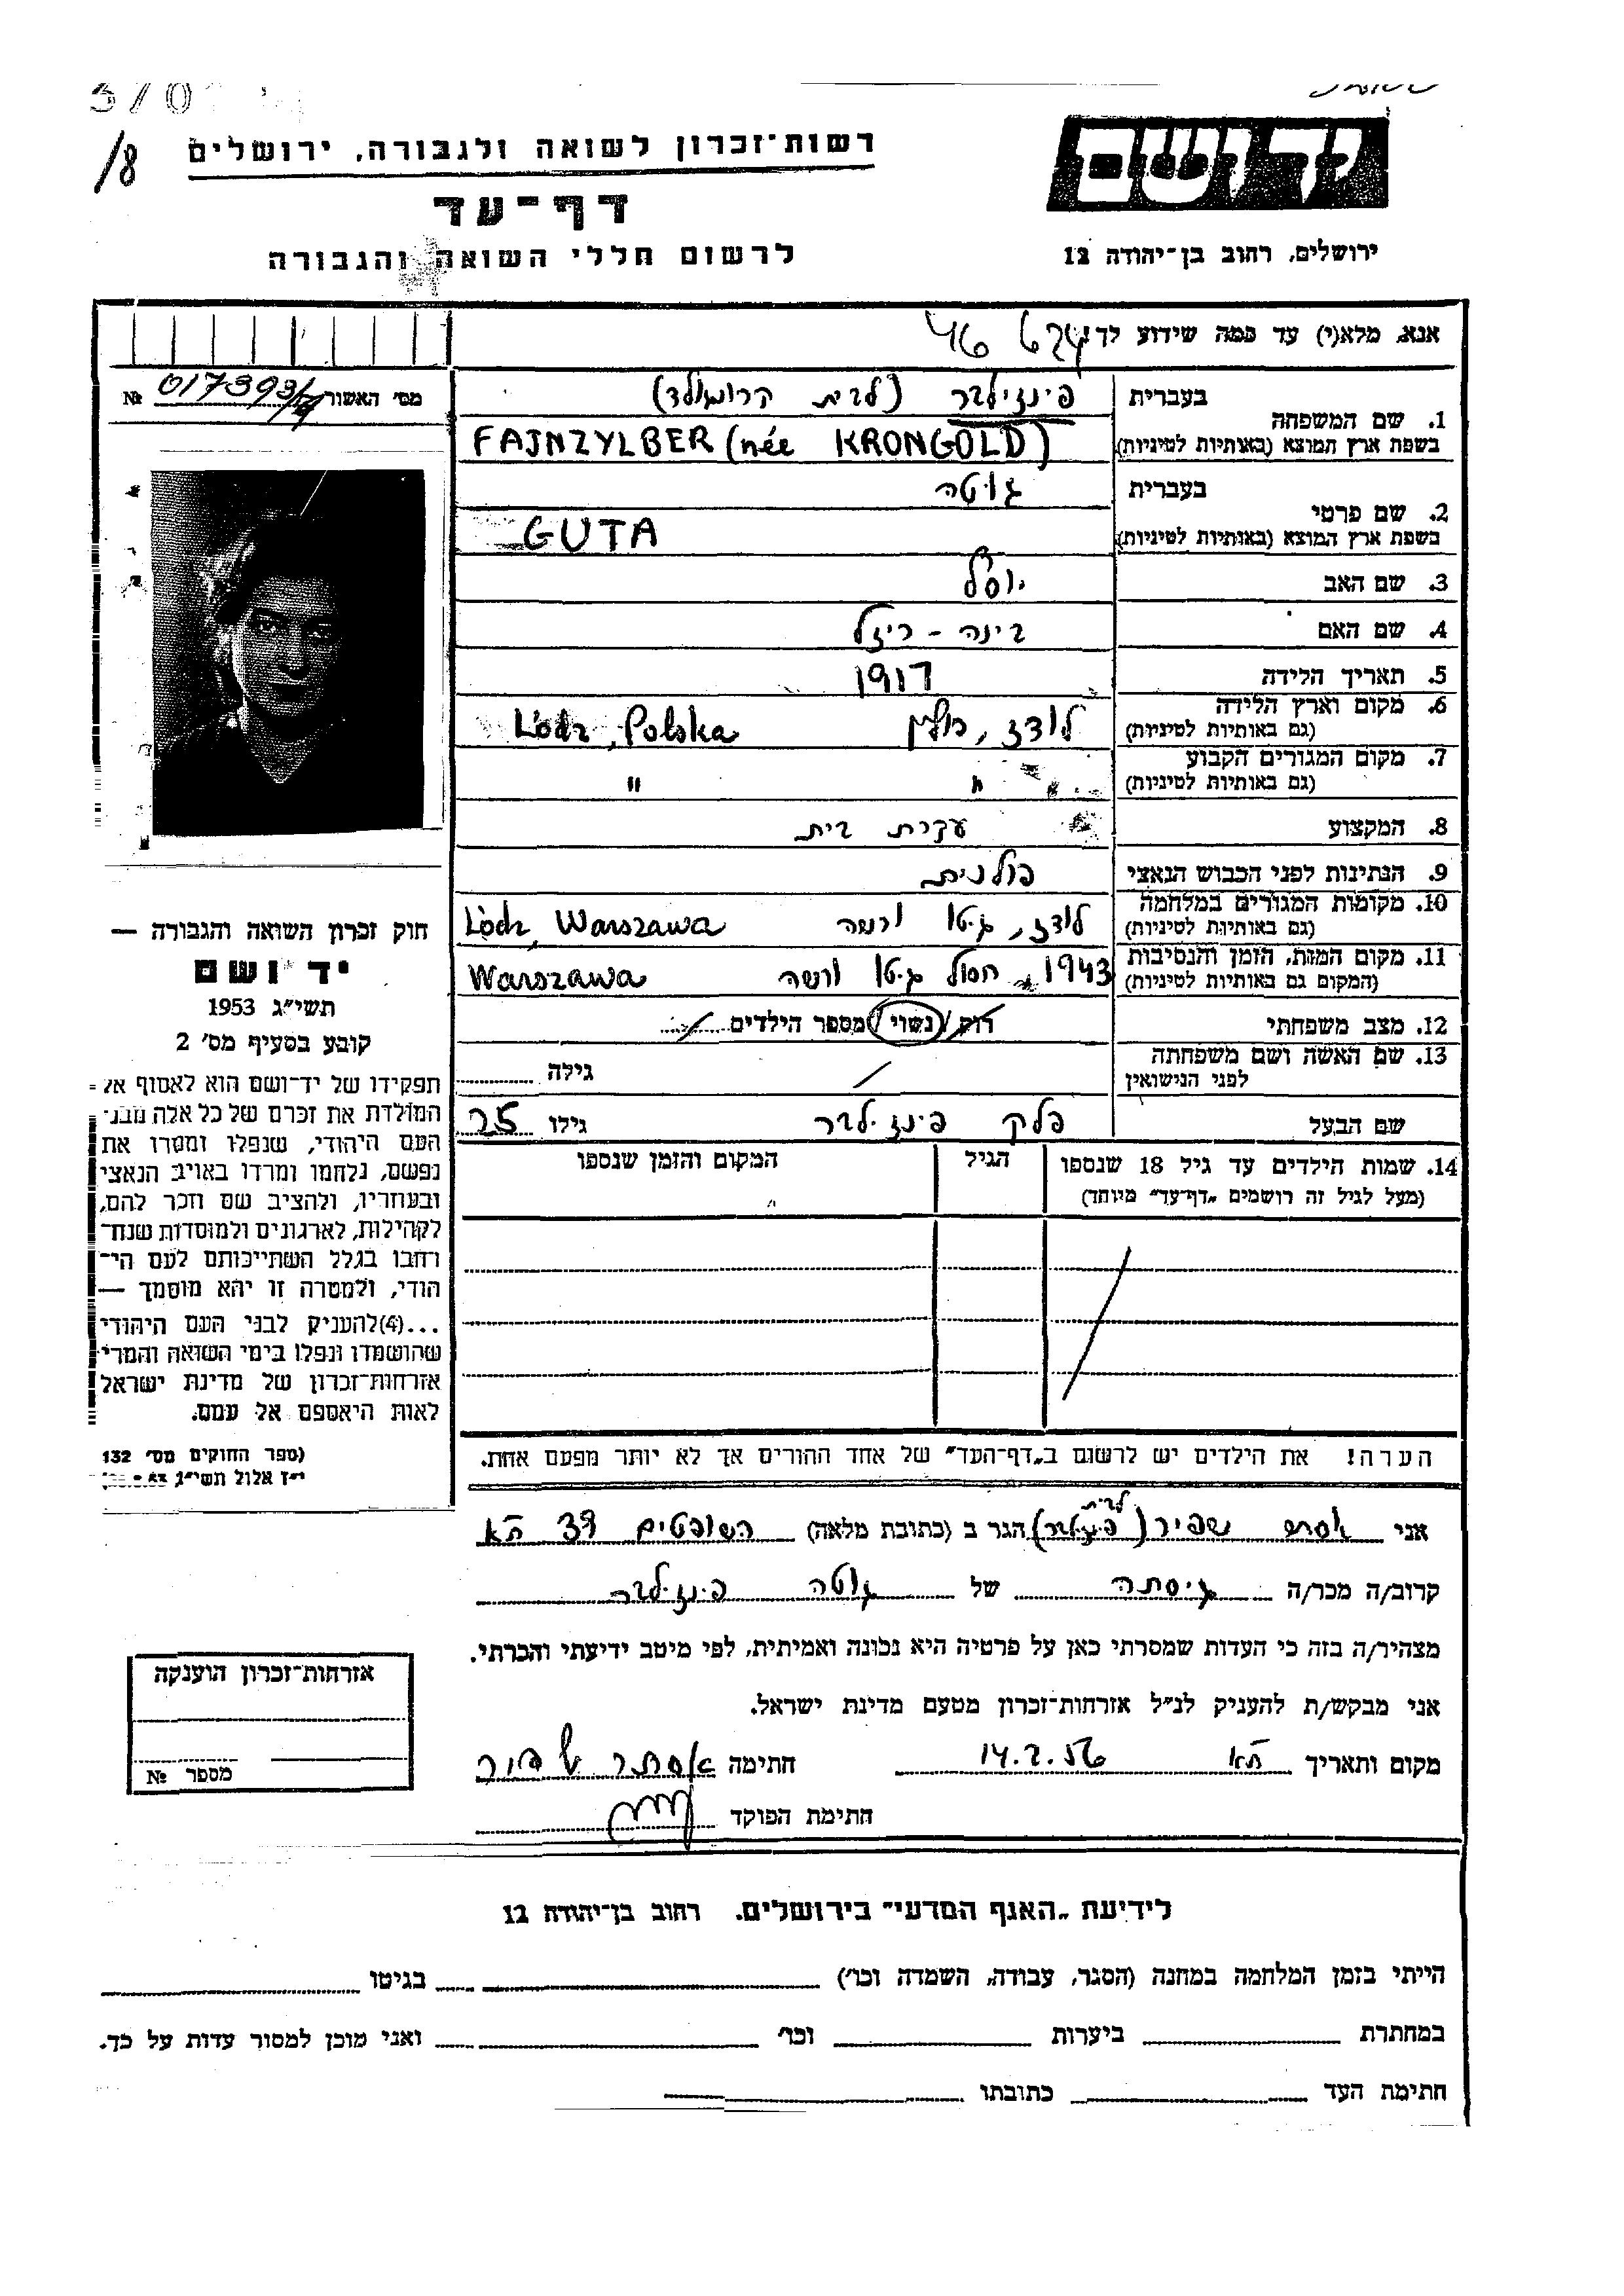 /8
יד ושם
ירושלים, רחוב בן־יהודה 12
רשות־זכרון לשואה ולגבורה, ירושלים
דף־עד
לרשום חללי השואה והגבורה
אנא, מלא(י) עד כמה שידוע לך!
מס׳ האשור № 017393/
1. שם המשפחה
בעברית פינזילבר (לבית קרונגולד)
בשפת ארץ המוצא (באותיות לטיניות) FAJNZYLBER (née KRONGOLD)
2. שם פרטי
בעברית גוטה
בשפת ארץ המוצא (באותיות לטיניות) GUTA
3. שם האב יוסל
4. שם האם בינה - רייזל
5. תאריך הלידה 1917
6. מקום וארץ הלידה (גם באותיות לטיניות) לודז, פולין Lódz, Polska
7. מקום המגורים הקבוע (גם באותיות לטיניות) " "
8. המקצוע עקרת בית
9. הנתינות לפני הכבוש הנאצי פולנית
10. מקומות המגורים במלחמה (גם באותיות לטיניות) לודז, גיטו ורשה Lódz, Warszawa
11. מקום המות, הזמן והנסיבות (המקום גם באותיות לטיניות) 1943 חסול גיטו ורשה Warszawa
12. מצב משפחתי רוק / נשוי / מספר הילדים
13. שם האשה ושם משפחתה לפני הנישואין / גילה
שם הבעל פלק פינזילבר גילו 25
14. שמות הילדים עד גיל 18 שנספו הגיל המקום והזמן שנספו
(מעל לגיל זה רושמים „דף־עד״ מיוחד)
הערה! את הילדים יש לרשום ב„דף־העד״ של אחד ההורים אך לא יותר מפעם אחת.
אני אסתר שפירו (לבית פינזילבר) הגר ב (כתובת מלאה) השופטים 39 תא
קרוב/ה מכר/ה גיסתה של גוטה פינזילבר
מצהיר/ה בזה כי העדות שמסרתי כאן על פרטיה היא נכונה ואמיתית, לפי מיטב ידיעתי והכרתי.
אני מבקש/ת להעניק לנ״ל אזרחות־זכרון מטעם מדינת ישראל.
מקום ותאריך תא 14.2.56 חתימה אסתר שפירו
חתימת הפוקד
חוק זכרון השואה והגבורה —
יד ושם
תשי״ג 1953
קובע בסעיף מס׳ 2
תפקידו של יד־ושם הוא לאסוף אל
המולדת את זכרם של כל אלה מבני
העם היהודי, שנפלו ומסרו את
נפשם, נלחמו ומרדו באויב הנאצי
ובעוזריו, ולהציב שם וזכר להם,
לקהילות, לארגונים ולמוסדות שנח־
רחבו בגלל השתייכותם לעם הי־
הודי, ולמטרה זו יהא מוסמך —
...(4)להעניק לבני העם היהודי
שהושמדו ונפלו בימי השואה והמרי
אזרחות־זכרון של מדינת ישראל
לאות היאספם אל עמם.
(ספר החוקים מס׳ 132
י״ז אלול תשי״ג
אזרחות־זכרון הוענקה
מספר №
לידיעת „האגף המדעי״ בירושלים. רחוב בן־יהודה 12
הייתי בזמן המלחמה במחנה (הסגר, עבודה, השמדה וכו׳) בגיטו
במחתרת ביערות וכו׳ ואני מוכן למסור עדות על כך.
חתימת העד כתובתו